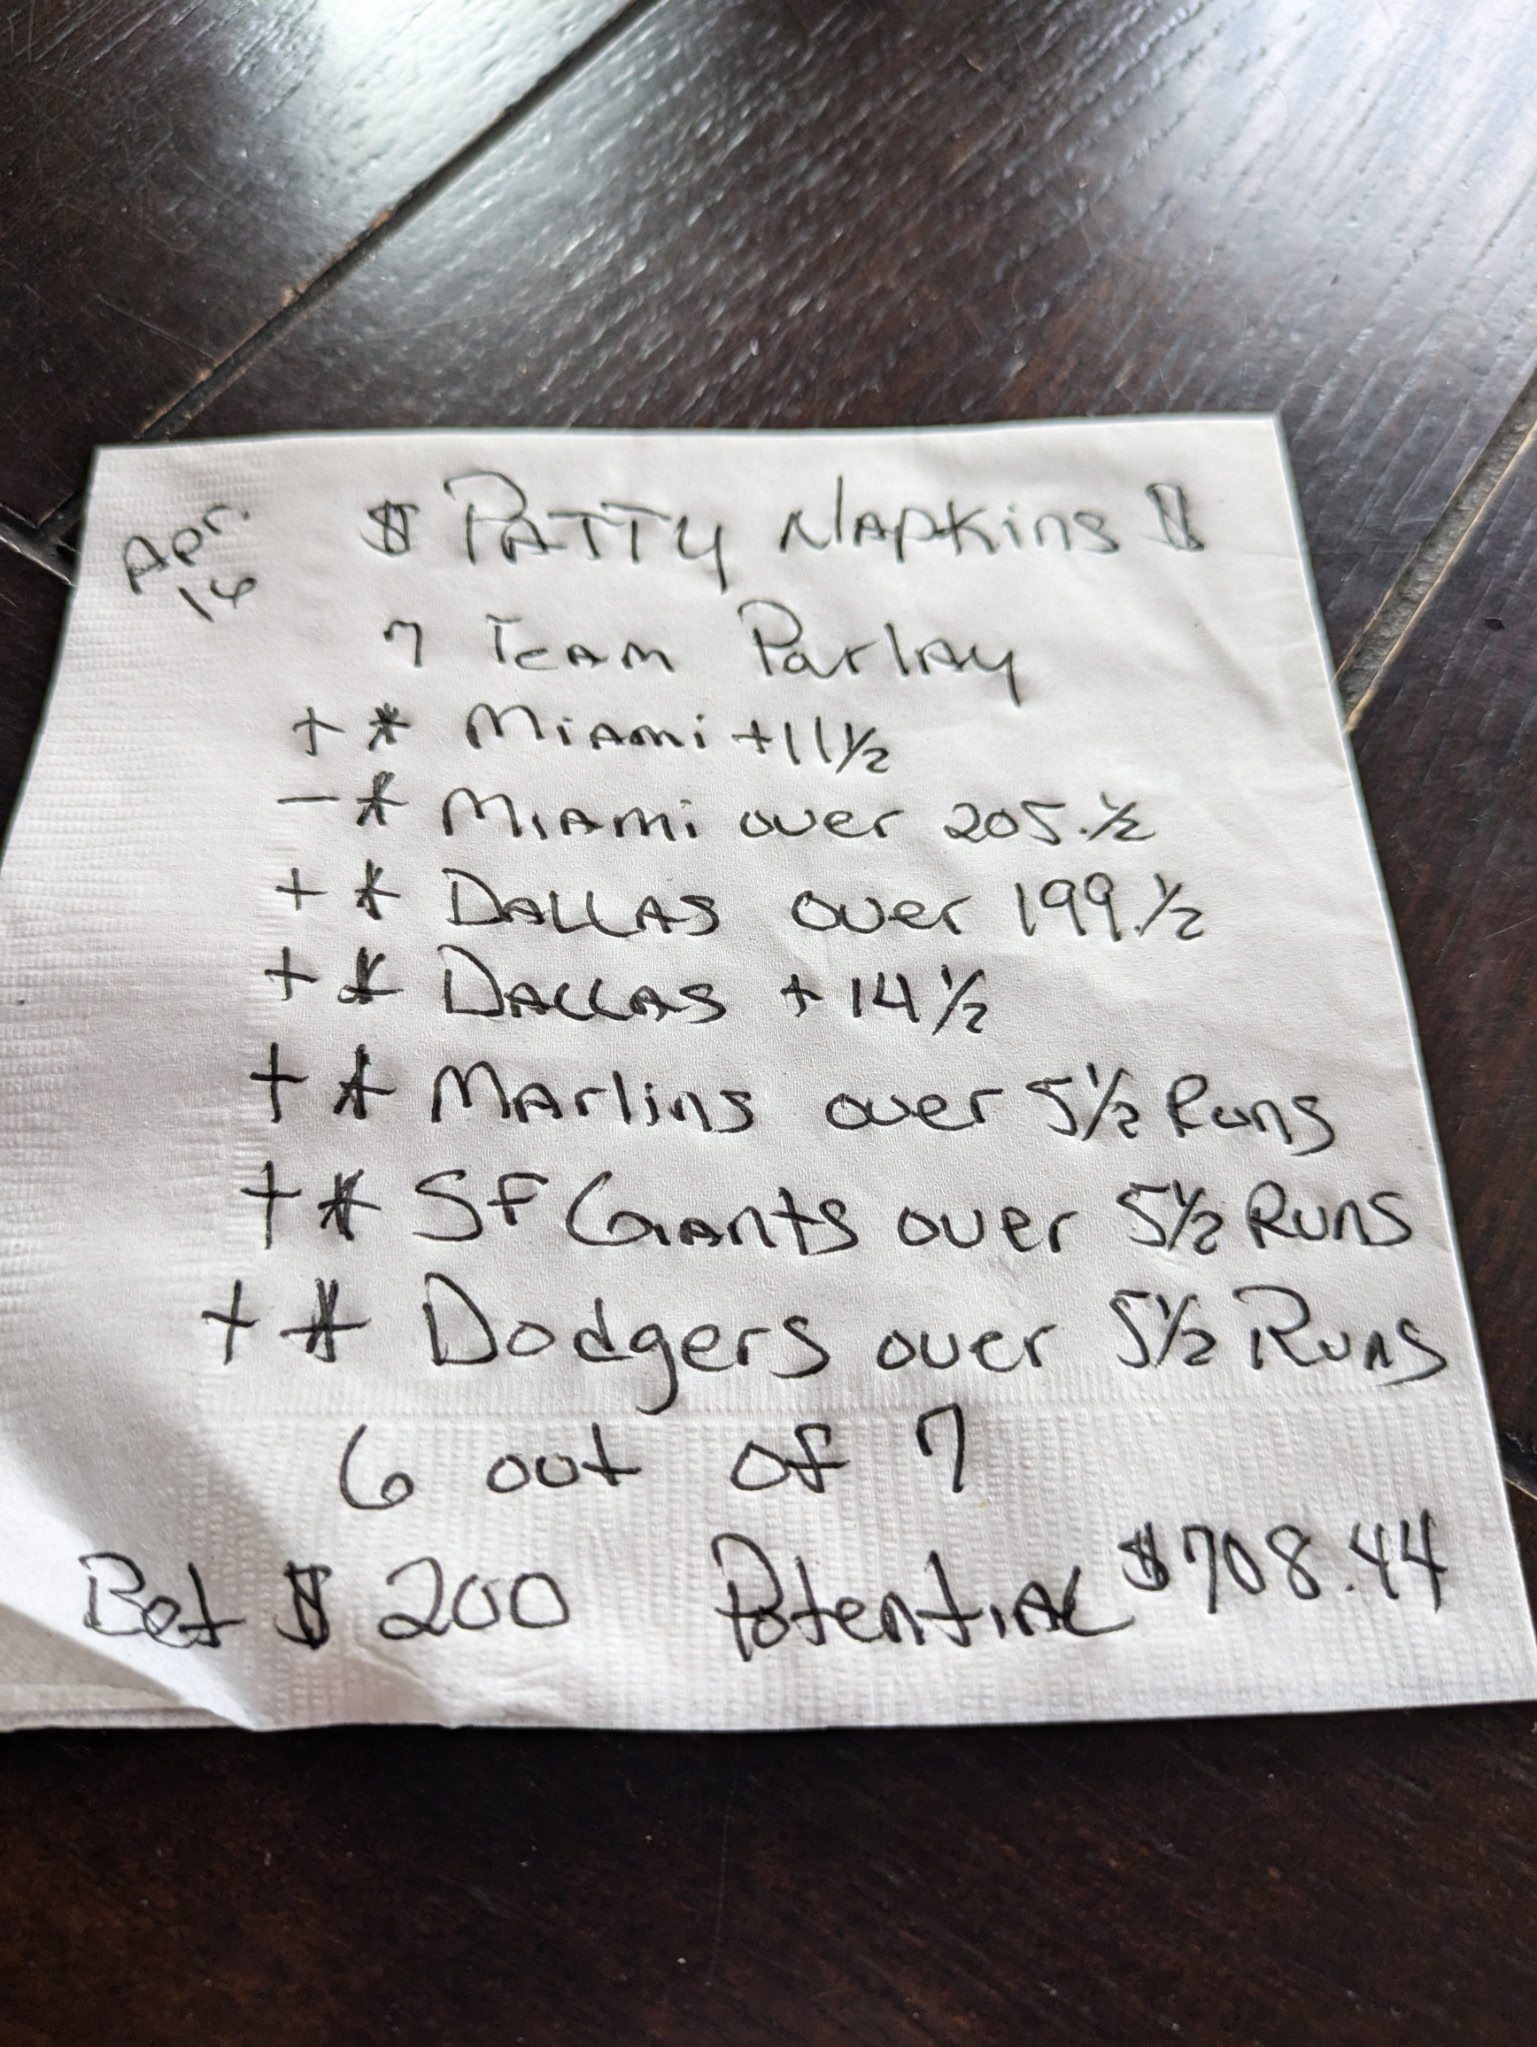 Apr. 16
$ PATTY NAPKINS $
7 TEAM Parlay
+ * MIAMI +11 1/2
- * MIAMI over 205.1/2
+ * DALLAS over 199.1/2
+ * DALLAS + 14 1/2
+ * MARlins over 5 1/2 Runs
+ * SF GIANTS over 5 1/2 RUNS
+ * Dodgers over 5 1/2 RUNS
6 out of 7
Bet $ 200 Potential $708.44